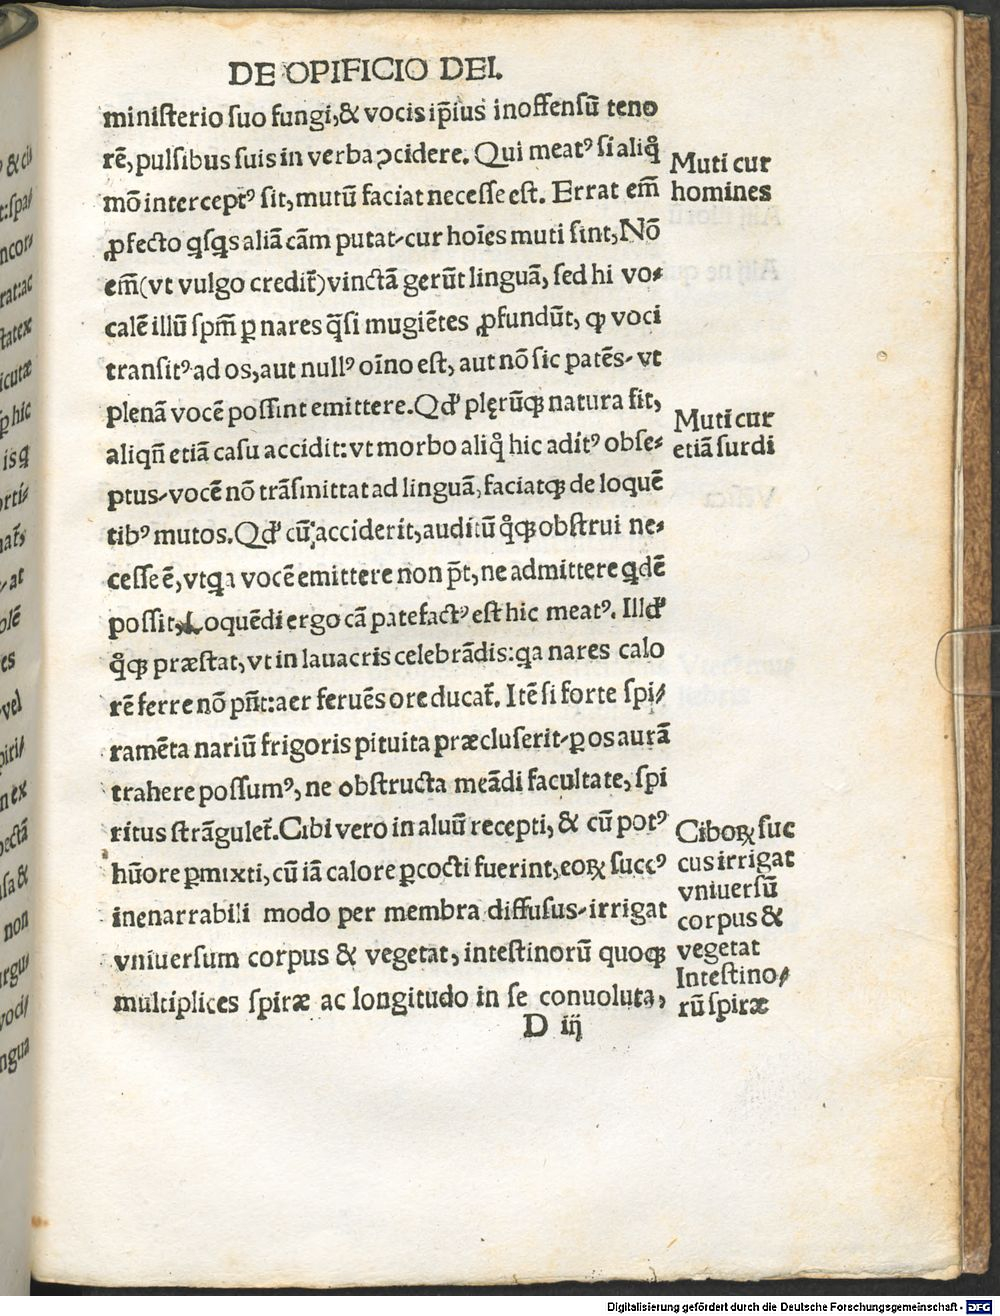 DE OPIFICIO DEI.
miniſterio ſuo fungi,& vocis ip̄ius inoffenſū teno
rē,pulſibus ſuis in verba ↄcidere. Qui meatꝰ ſi aliq̊
mō interceptꝰ ſit,mutū faciat neceſſe eſt. Errat em̄
ꝓfecto qſqs aliā cām putat⸗cur hoīes muti ſint,Nō
em̄(vt vulgo credit̄)vinctā gerūt linguā, ſed hi vo⸗
calē illū ſpm̄ ꝑ nares q̄ſi mugiētes ꝓfundūt, ꝙ voci
tranſitꝰ ad os,aut nullꝰ oīno eſt, aut nō ſic patēs⸗ vt
plenā vocē poſſint emittere.Qđ plęrūqꝫ natura fit,
aliqn̄ etiā caſu accidit:vt morbo aliq̊ hic aditꝰ obſe⸗
ptus⸗vocē nō trāſmittat ad linguā,faciatqꝫ de loquē
tibꝰ mutos.Qđ cū acciderit,auditū q̊qꝫ obſtrui ne⸗
ceſſe ē,vtqa vocē emittere non pt̄,ne admittere qdē
poſſit,Loquēdi ergo cā patefactꝰ eſt hic meatꝰ. Illđ
q̊qꝫ præſtat,vt in lauacris celebrādis:qa nares calo
rē ferre nō pn̄t:aer feruēs ore ducat̄. Itē ſi forte ſpi/
ramēta nariū frigoris pituita præcluſerit⸗ꝑ os aurā
trahere poſſumꝰ, ne obſtructa meādi facultate, ſpi
ritus ſtrāgulet̄.Cibi vero in aluū recepti, & cū potꝰ
hūore ꝑmixti, cū iā calore ꝑcocti fuerint,eoꝝ ſuccꝰ
inenarrabili modo per membra diffuſus⸗irrigat
vniuerſum corpus & vegetat, inteſtinorū quoqꝫ
multiplices ſpiræ ac longitudo in ſe conuoluta,
D iij
Muti cur
homines
Muti cur
etiā ſurdi
Ciboꝝ ſuc
cus irrigat
vniuerſū
corpus &
vegetat
Inteſtino/
rū ſpiræ
Digitalisierung gefördert durch die Deutsche Forschungsgemeinschaft - DFG